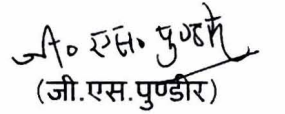 जी० एस० पुण्डीर
(जी.एस.पुण्डीर)